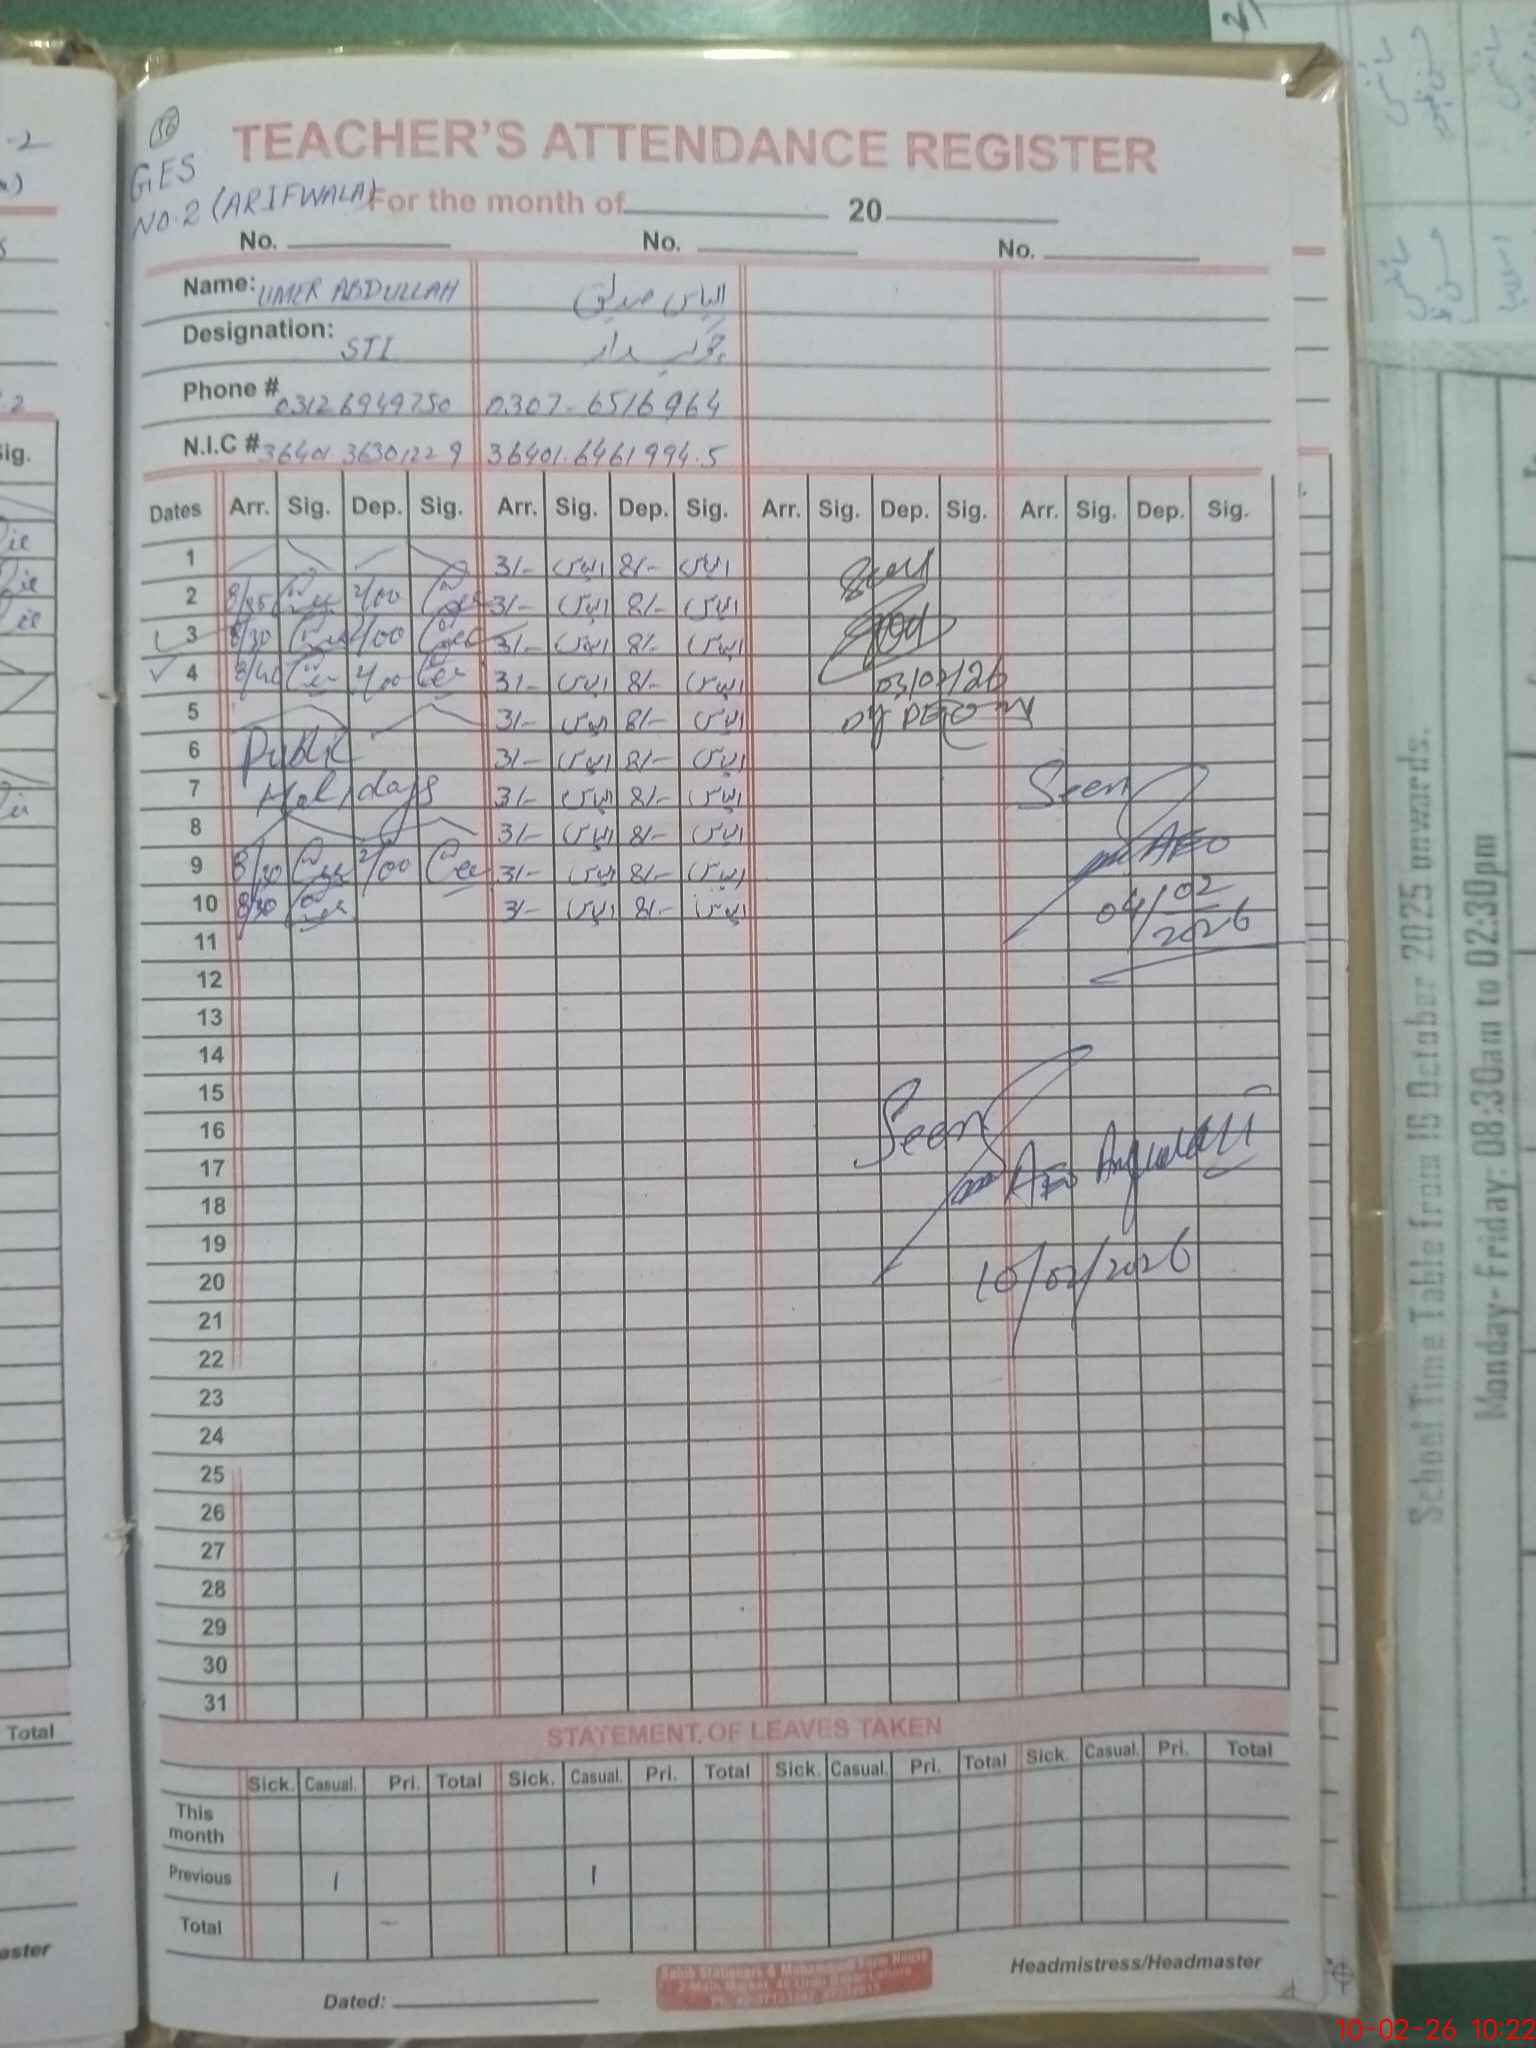 56
GES
NO.2 (ARIFWALA)
TEACHER'S ATTENDANCE REGISTER
For the month of 20
No. No. No.
Name: UMER ABDULLAH الیاس صدیق
Designation: STI چوکیدار
Phone # 03126949750 0307-6516964
N.I.C # 36401 3630122 9 36401.6461994.5
Dates Arr. Sig. Dep. Sig. Arr. Sig. Dep. Sig. Arr. Sig. Dep. Sig. Arr. Sig. Dep. Sig.
1 3/- الیاس 8/- الیاس
2 2/00 3/- الیاس 8/- الیاس
3 8/30 2/00 3/- الیاس 8/- الیاس
4 8/40 2/00 3/- الیاس 8/- الیاس
5 3/- الیاس 8/- الیاس
6 Public 3/- الیاس 8/- الیاس
7 Holidays 3/- الیاس 8/- الیاس
8 3/- الیاس 8/- الیاس
9 8/30 2/00 3/- الیاس 8/- الیاس
10 8/30 3/- الیاس 8/- الیاس
11
12
13
14
15
16
17
18
19
20
21
22
23
24
25
26
27
28
29
30
31
Seen
03/02/26
Seen
AEO
04/02
2026
Seen
AEO
10/02/2026
STATEMENT OF LEAVES TAKEN
Sick. Casual. Pri. Total Sick. Casual. Pri. Total Sick. Casual. Pri. Total Sick. Casual. Pri. Total
This
month
Previous 1 1
Total
Headmistress/Headmaster
Dated:
Sig.
Total
School Time Table from 16 October 2025 onwards.
Monday-Friday: 08:30am to 02:30pm
10-02-26 10:22